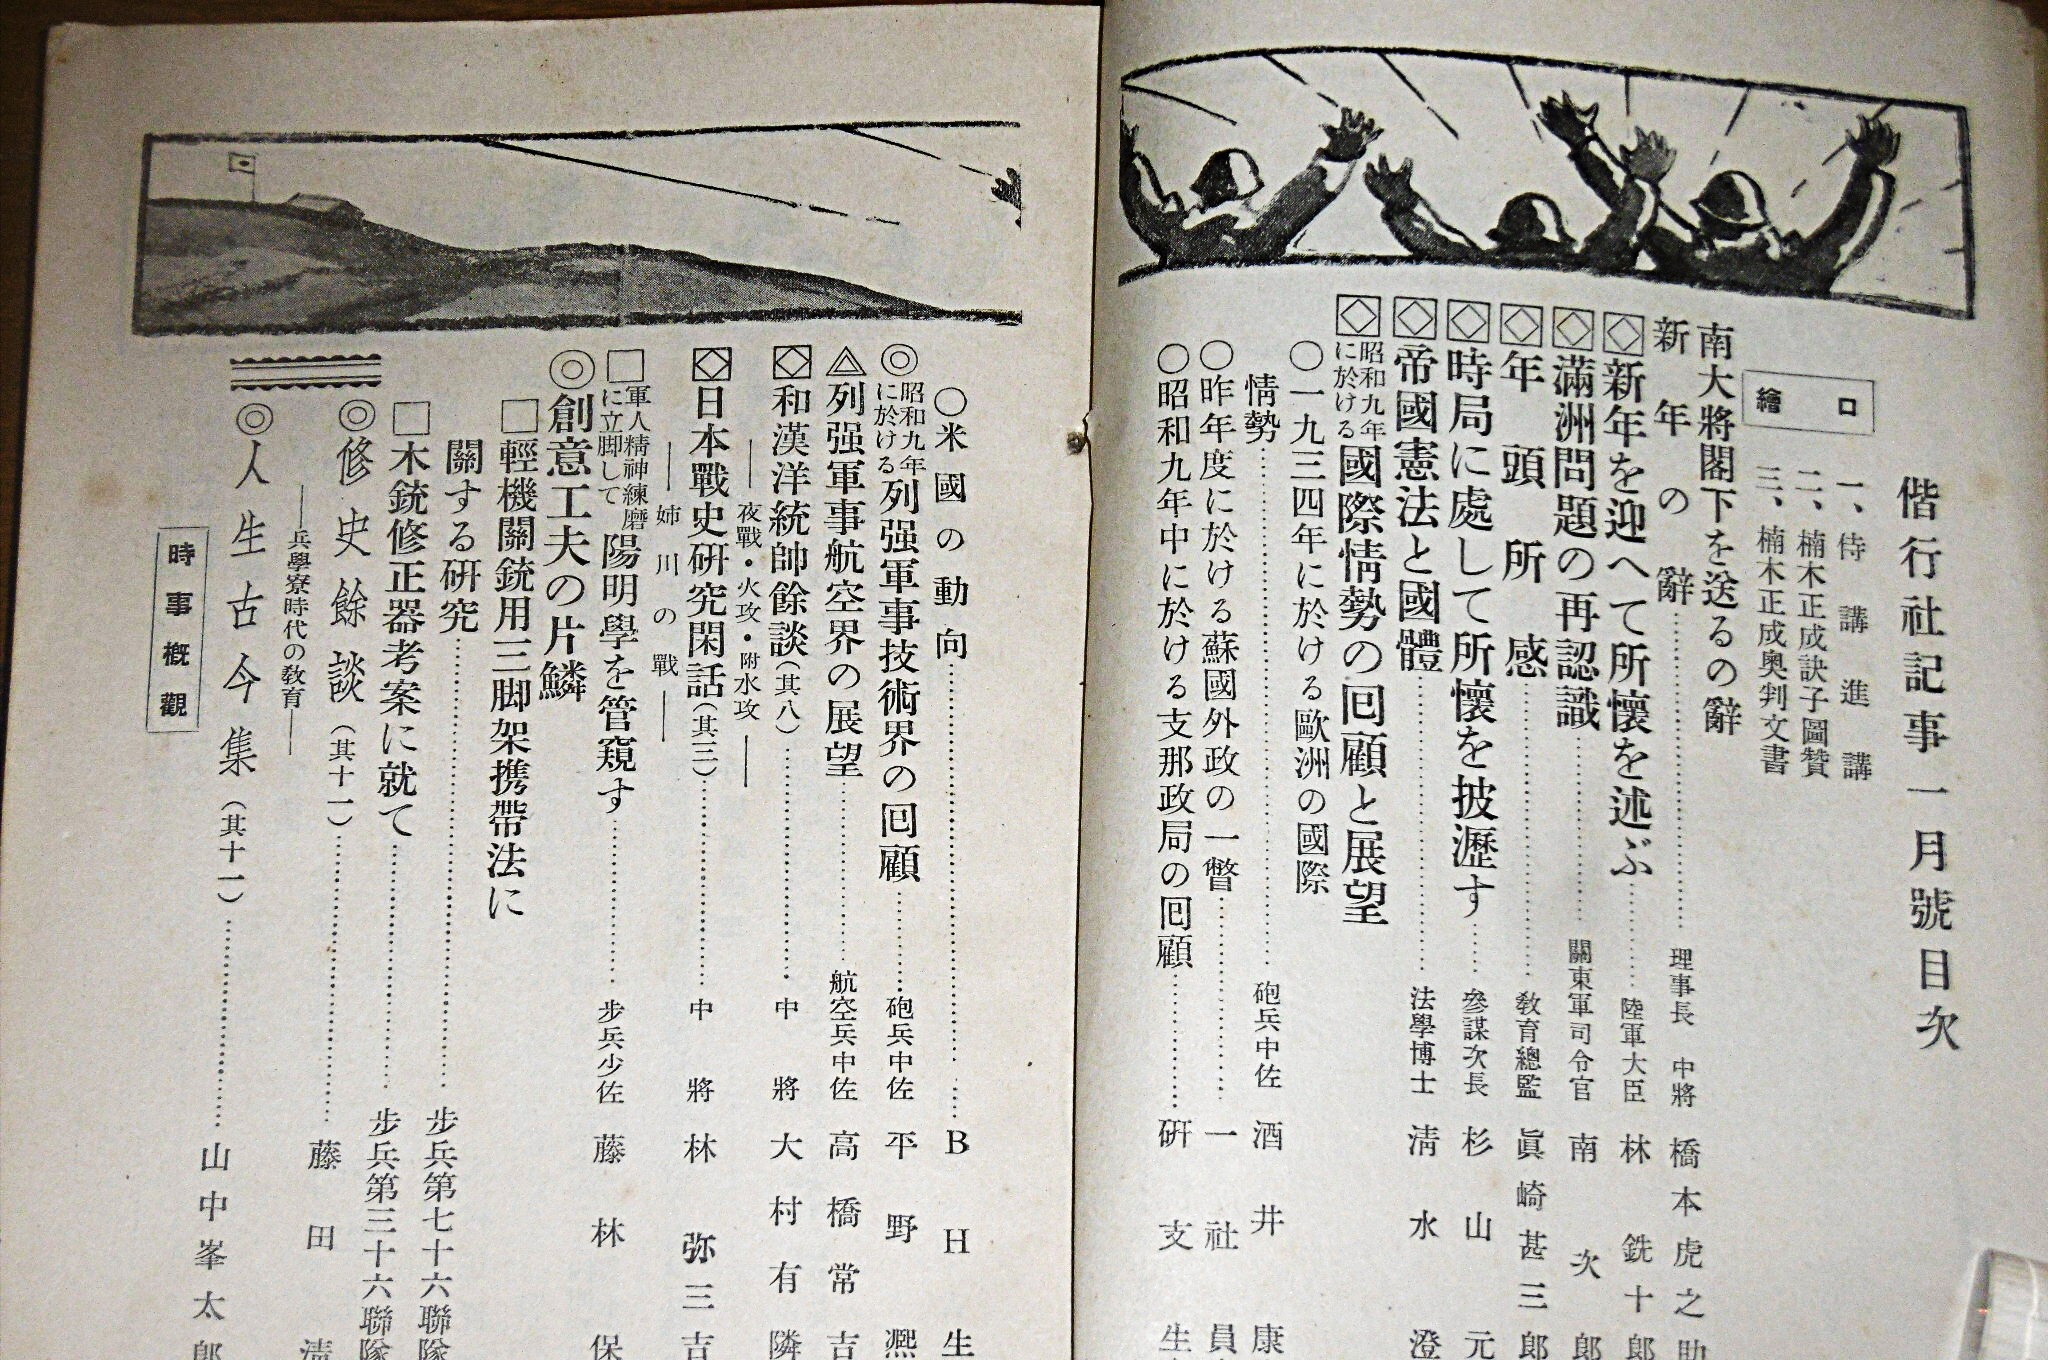 偕行社記事一月號目次
口繪
一、侍講進講
二、楠木正成訣子圖贊
三、楠木正成奧判文書
南大將閣下を送るの辭
新年の辭 理事長 中將 橋本虎之助
新年を迎へて所懷を述ぶ 陸軍大臣 林銑十郎
滿洲問題の再認識 關東軍司令官 南次郎
年頭所感 敎育總監 眞崎甚三郎
時局に處して所懷を披瀝す 參謀次長 杉山元
帝國憲法と國體 法學博士 淸水澄
昭和九年に於ける國際情勢の回顧と展望
〇一九三四年に於ける歐洲の國際
情勢 砲兵中佐 酒井康
〇昨年度に於ける蘇國外政の一瞥 一社員
〇昭和九年中に於ける支那政局の回顧 硏支生
〇米國の動向 BH生
◎昭和九年に於ける列强軍事技術界の回顧 砲兵中佐 平野凞
列强軍事航空界の展望 航空兵中佐 高橋常吉
和漢洋統帥餘談(其八) 中將 大村有隣
——夜戰・火攻・附水攻——
日本戰史硏究閑話(其三) 中將 林弥三吉
——姉川の戰——
□軍人精神練磨に立脚して陽明學を管窺す 步兵少佐 藤林保
◎創意工夫の片鱗
□輕機關銃用三脚架携帶法に
關する硏究 步兵第七十六聯隊
□木銃修正器考案に就て 步兵第三十六聯隊
◎修史餘談(其十一) 藤田淸
——兵學寮時代の敎育——
◎人生古今集(其十一) 山中峯太郎
時事槪觀